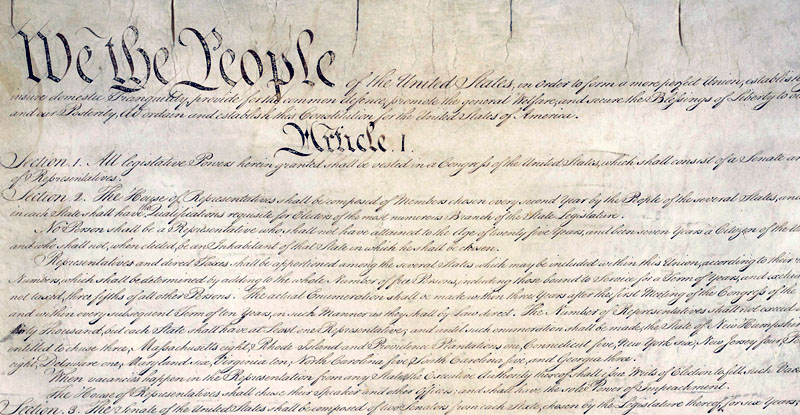 We the People of the United States, in order to form a more perfect Union, establish
insure domestic Tranquility, provide for the common defence, promote the general Welfare, and secure the Blessings of Liberty to
and our Posterity, do ordain and establish this Constitution for the United States of America.
Article. I.
Section 1. All legislative Powers herein granted shall be vested in a Congress of the United States, which shall consist of a Senate
of Representatives.
Section 2. The House of Representatives shall be composed of Members chosen every second Year by the People of the several States, and
in each State shall have the Qualifications requisite for Electors of the most numerous Branch of the State Legislature.
No Person shall be a Representative who shall not have attained to the Age of twenty five Years, and been seven Years a Citizen of the
and who shall not, when elected, be an Inhabitant of that State in which he shall be chosen.
Representatives and direct Taxes shall be apportioned among the several States which may be included within this Union, according to their
Numbers, which shall be determined by adding to the whole Number of free Persons, including those bound to Service for a Term of Years, and
not taxed, three fifths of all other Persons. The actual Enumeration shall be made within three Years after the first Meeting of the Congress of the
and within every subsequent Term of ten Years, in such Manner as they shall by Law direct. The Number of Representatives shall not exceed
thirty Thousand, but each State shall have at Least one Representative; and until such enumeration shall be made, the State of New Hampshire
entitled to chuse three, Massachusetts eight, Rhode Island and Providence Plantations one, Connecticut five, New York six, New Jersey four,
eight, Delaware one, Maryland six, Virginia ten, North Carolina five, South Carolina five, and Georgia three.
When vacancies happen in the Representation from any State, the Executive Authority thereof shall issue Writs of Election to fill such
The House of Representatives shall chuse their Speaker and other Officers; and shall have the sole Power of Impeachment.
Section 3. The Senate of the United States shall be composed of two Senators from each State, chosen by the Legislature thereof, for six Years;